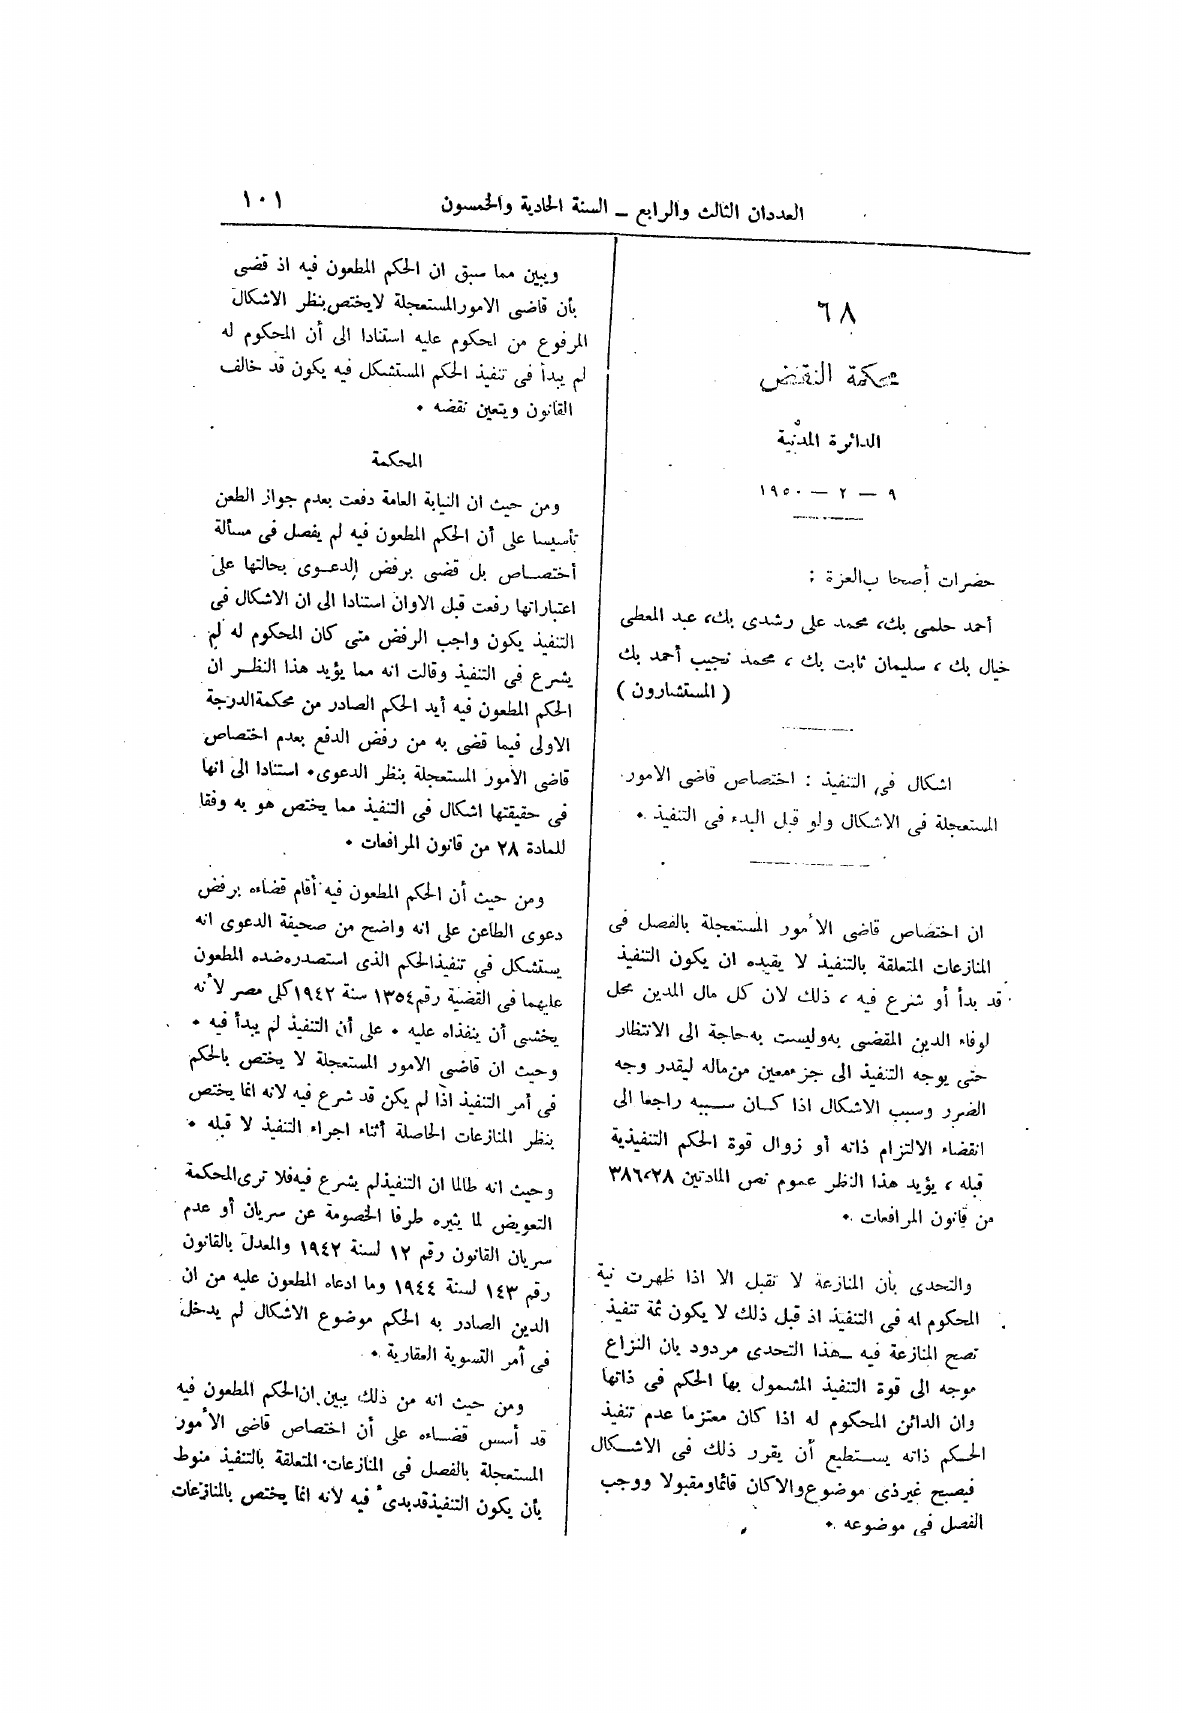 العددان الثالث والرابع – السنة الحادية والخمسون
١٠١
٦٨
محكمة النقض
الدائرة المدنية
٩ – ٢ – ١٩٥٠
حضرات أصحاب العزة :
أحمد حلمى بك، محمد على رشدى بك، عبد المعطى
خيال بك ، سليمان ثابت بك ، محمد نجيب أحمد بك
( المستشارون )
اشكال فى التنفيذ : اختصاص قاضى الامور
المستعجلة فى الاشكال ولو قبل البدء فى التنفيذ .
ان اختصاص قاضى الأمور المستعجلة بالفصل فى
المنازعات المتعلقة بالتنفيذ لا يقيده ان يكون التنفيذ
قد بدأ أو شرع فيه ، ذلك لان كل مال المدين محل
لوفاء الدين المقضى به وليست به حاجة الى الانتظار
حتى يوجه التنفيذ الى جزء معين من ماله ليقدر وجه
الضرر وسبب الاشكال اذا كان سببه راجعا الى
انقضاء الالتزام ذاته أو زوال قوة الحكم التنفيذية
قبله ، يؤيد هذا النظر عموم نص المادتين ٢٨، ٣٨٦
من قانون المرافعات .
والتحدى بأن المنازعة لا تقبل الا اذا ظهرت نية
المحكوم له فى التنفيذ اذ قبل ذلك لا يكون ثمة تنفيذ
تصح المنازعة فيه – هذا التحدى مردود بان النزاع
موجه الى قوة التنفيذ المشمول بها الحكم فى ذاتها
وان الدائن المحكوم له اذا كان معتزما عدم تنفيذ
الحكم ذاته يستطيع أن يقرر ذلك فى الاشكال
فيصبح غير ذى موضوع والا كان قائما ومقبولا ووجب
الفصل فى موضوعه .
ويبين مما سبق ان الحكم المطعون فيه اذ قضى
بأن قاضى الامور المستعجلة لا يختص بنظر الاشكال
المرفوع من المحكوم عليه استنادا الى أن المحكوم له
لم يبدأ فى تنفيذ الحكم المستشكل فيه يكون قد خالف
القانون ويتعين نقضه .
المحكمة
ومن حيث ان النيابة العامة دفعت بعدم جواز الطعن
تأسيسا على أن الحكم المطعون فيه لم يفصل فى مسألة
أختصاص بل قضى برفض الدعوى بحالتها على
اعتبار انها رفعت قبل الاوان استنادا الى ان الاشكال فى
التنفيذ يكون واجب الرفض متى كان المحكوم له لم
يشرع فى التنفيذ وقالت انه مما يؤيد هذا النظر ان
الحكم المطعون فيه أيد الحكم الصادر من محكمة الدرجة
الاولى فيما قضى به من رفض الدفع بعدم اختصاص
قاضى الامور المستعجلة بنظر الدعوى . استنادا الى انها
فى حقيقتها اشكال فى التنفيذ مما يختص هو به وفقا
للمادة ٢٨ من قانون المرافعات .
ومن حيث أن الحكم المطعون فيه أقام قضاءه برفض
دعوى الطاعن على انه واضح من صحيفة الدعوى انه
يستشكل في تنفيذ الحكم الذى استصدره ضده المطعون
عليهما فى القضية رقم ١٣٥٤ سنة ١٩٤٢ كلى مصر لأنه
يخشى أن ينفذاه عليه . على أن التنفيذ لم يبدأ فيه .
وحيث ان قاضى الامور المستعجلة لا يختص بالحكم
فى أمر التنفيذ اذا لم يكن قد شرع فيه لانه انما يختص
بنظر المنازعات الحاصلة أثناء اجراء التنفيذ لا قبله .
وحيث انه طالما ان التنفيذ لم يشرع فيه فلا ترى المحكمة
التعويض لما يثيره طرفا الخصومة عن سريان أو عدم
سريان القانون رقم ١٢ لسنة ١٩٤٢ والمعدل بالقانون
رقم ١٤٣ لسنة ١٩٤٤ وما ادعاه المطعون عليه من ان
الدين الصادر به الحكم موضوع الاشكال لم يدخل
فى أمر التسوية العقارية .
ومن حيث انه من ذلك يبين ان الحكم المطعون فيه
قد أسس قضاءه على أن اختصاص قاضى الأمور
المستعجلة بالفصل فى المنازعات المتعلقة بالتنفيذ منوط
بأن يكون التنفيذ قد بدىء فيه لانه انما يختص بالمنازعات